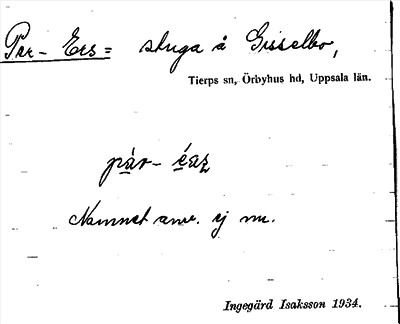 Per-Ers= stuga å Gisselbo,
Tierps sn, Örbyhus hd, Uppsala län.
pär- éaz
Namnet anv. ej nu.
Ingegärd Isaksson 1934.